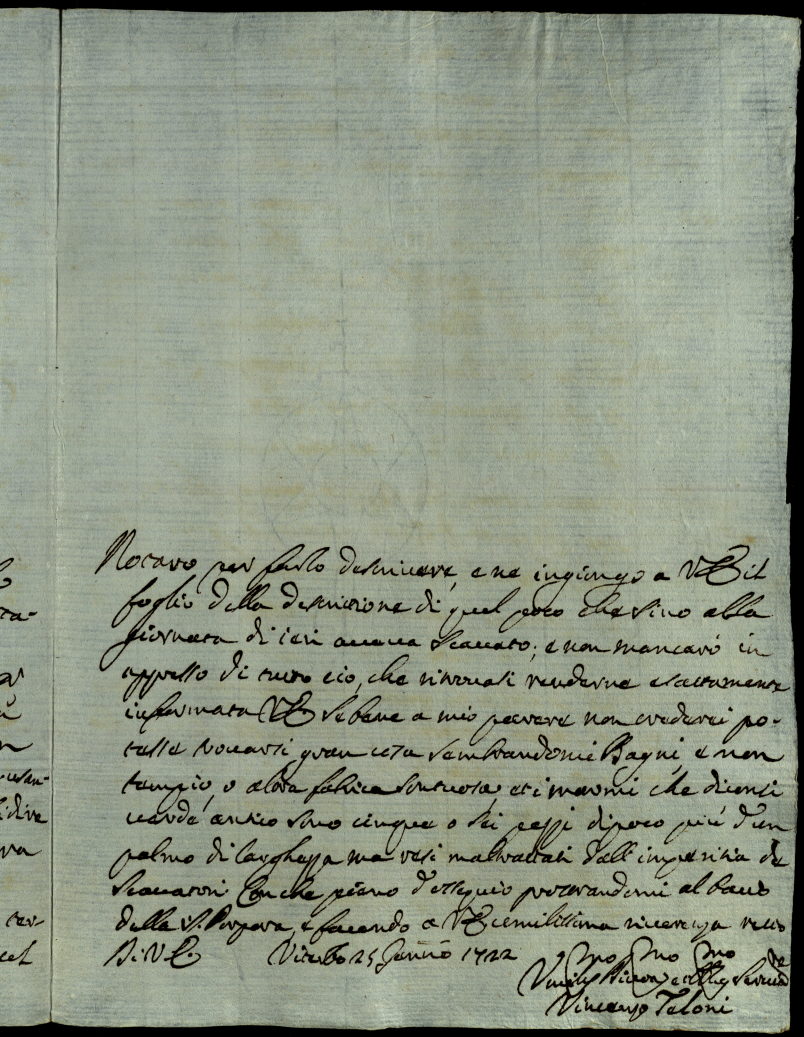 per farlo descrivere, e ne ingiongo a VE il
foglio della descrizione di quel poco che sino alla
giornata di ieri aveva scavato; e non mancarò in
appresso di tutto ciò, che ritrovasi renderne esattamente
informata VE Sebene a mio parere non crederei po-
tesse trovarsi gran cosa sembrandomi Bagni, e non
tempio, o altra fabrica sontuosa, et i marmi che diconsi
verde antico sono cinque o sei pezzi di poco più d'un
palmo di larghezza ma resi maltrattati dall'imperitia de
Scavatori Con che pieno d'ossequio prostrandomi al bacio
della S. Porpora, e facendo a VE umilissima riverenza resto
Di V.E. Viterbo 25 Genn.o 1722
Vincenzo Teloni
ta-
va